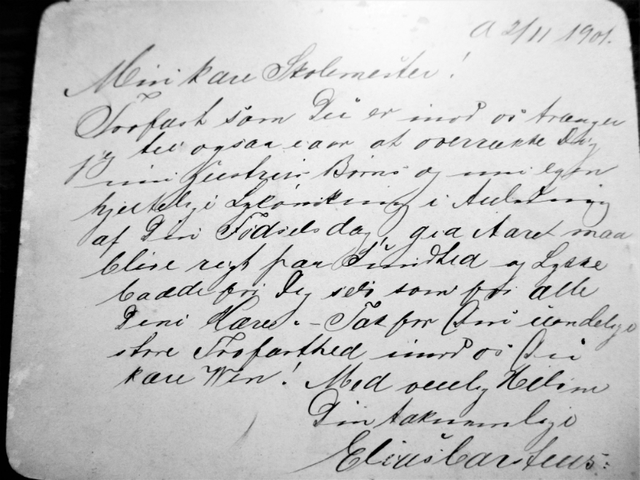 A 2/11 1901.
Min kære Skolemester!
Trofast som Du er imod os trænger
jeg til ogsaa iaar at overrække Dig
min Hustrus Børns og min egen
hjertelige Lykønskning i Anledning
af Din Fødselsdag, gid Aaret maa
blive rigt paa Sundhed og Lykke
baade for Dig selv som for alle
Dine Kære. – Tak for Din uendelige
store Trofasthed imod os Du
kære Ven! Med venlig Hilsen
Din taknemlige
Elius Carstens.